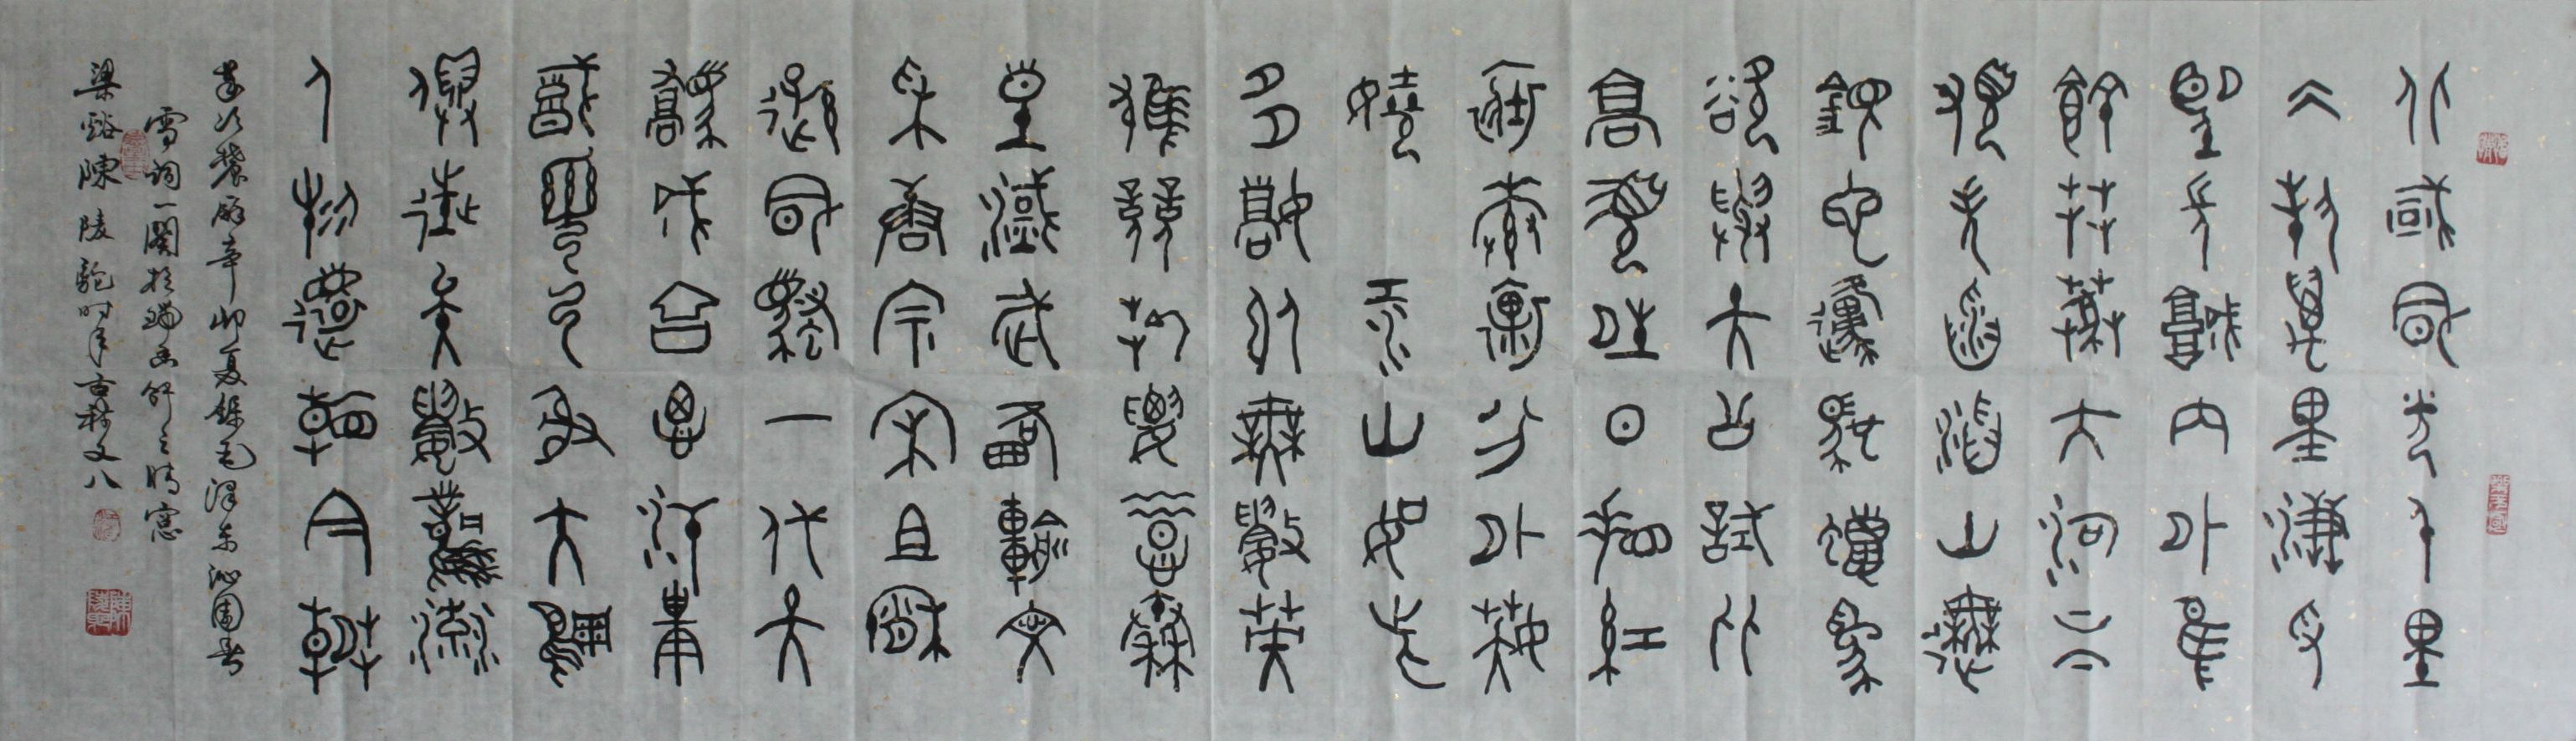 北國風光千里
冰封萬里雪飄
望長城內外惟
餘莽莽大河上下
頓失滔滔山舞
銀蛇原馳蠟象
欲與天公試比
高須晴日看紅
裝素裹分外妖
嬈 江山如此
多嬌引無數英
雄競折腰惜秦
皇漢武略輸文
采唐宗宋祖稍
遜風騷一代天
驕成吉思汗只
識彎弓射大雕
俱往矣數風流
人物還看今朝
辛卯夏錄毛澤東沁園春
雪詞一闋於軒之晴窗
梁谿陳陵駝時年古稀又八